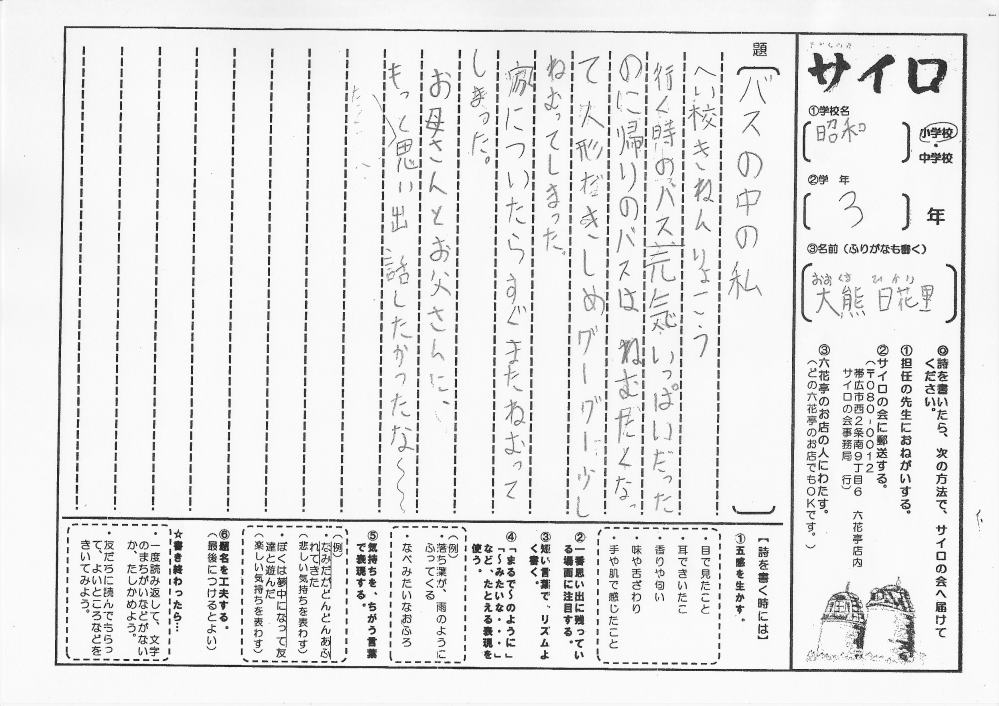 サイロ
①学校名
昭和
小学校
・
中学校
②学 年
3
年
③名前(ふりがなも書く)
おおくま ひかり
大熊 日花里
◎詩を書いたら、次の方法で、サイロの会へ届けて
ください。
①担任の先生におねがいする。
②サイロの会に郵送する。
(〒080-0012
帯広市西2条南9丁目6 六花亭店内
サイロの会事務局 行)
③六花亭のお店の人にわたす。
(どの六花亭のお店でもOKです。)
題
バスの中の私
へい校きねんりょこう
行く時のバス元気いっぱいだった
のに帰りのバスは ねむたくなっ
て人形だきしめグーグー少し
ねむってしまった。
家についたらすぐまたねむって
しまった。
お母さんとお父さんに、
もっと思い出 話したかったな〜〜
【詩を書く時には】
①五感を生かす。
・目で見たこと
・耳できいたこ
・香りや匂い
・味や舌ざわり
・手や肌で感じたこと
②一番思い出に残ってい
る場面に注目する。
③短い言葉で、リズムよ
く書く。
④「まるで〜のように」
「〜みたいな・・・」
など、たとえる表現を
使う。
(例)
・落ち葉が、雨のように
ふってくる
・なべみたいなおふろ
⑤気持ちを、ちがう言葉
で表現する。
(例)
・なみだがどんどんあふ
れてきた
(悲しい気持ちを表わす)
・ぼくは夢中になって友
達と遊んだ
(楽しい気持ちを表わす)
⑥題名を工夫する。
(最後につけるとよい)
☆書き終わったら…
・一度読み返して、文字
のまちがいなどがない
か、たしかめよう。
・友だちに読んでもらっ
て、よいところなどを
きいてみよう。